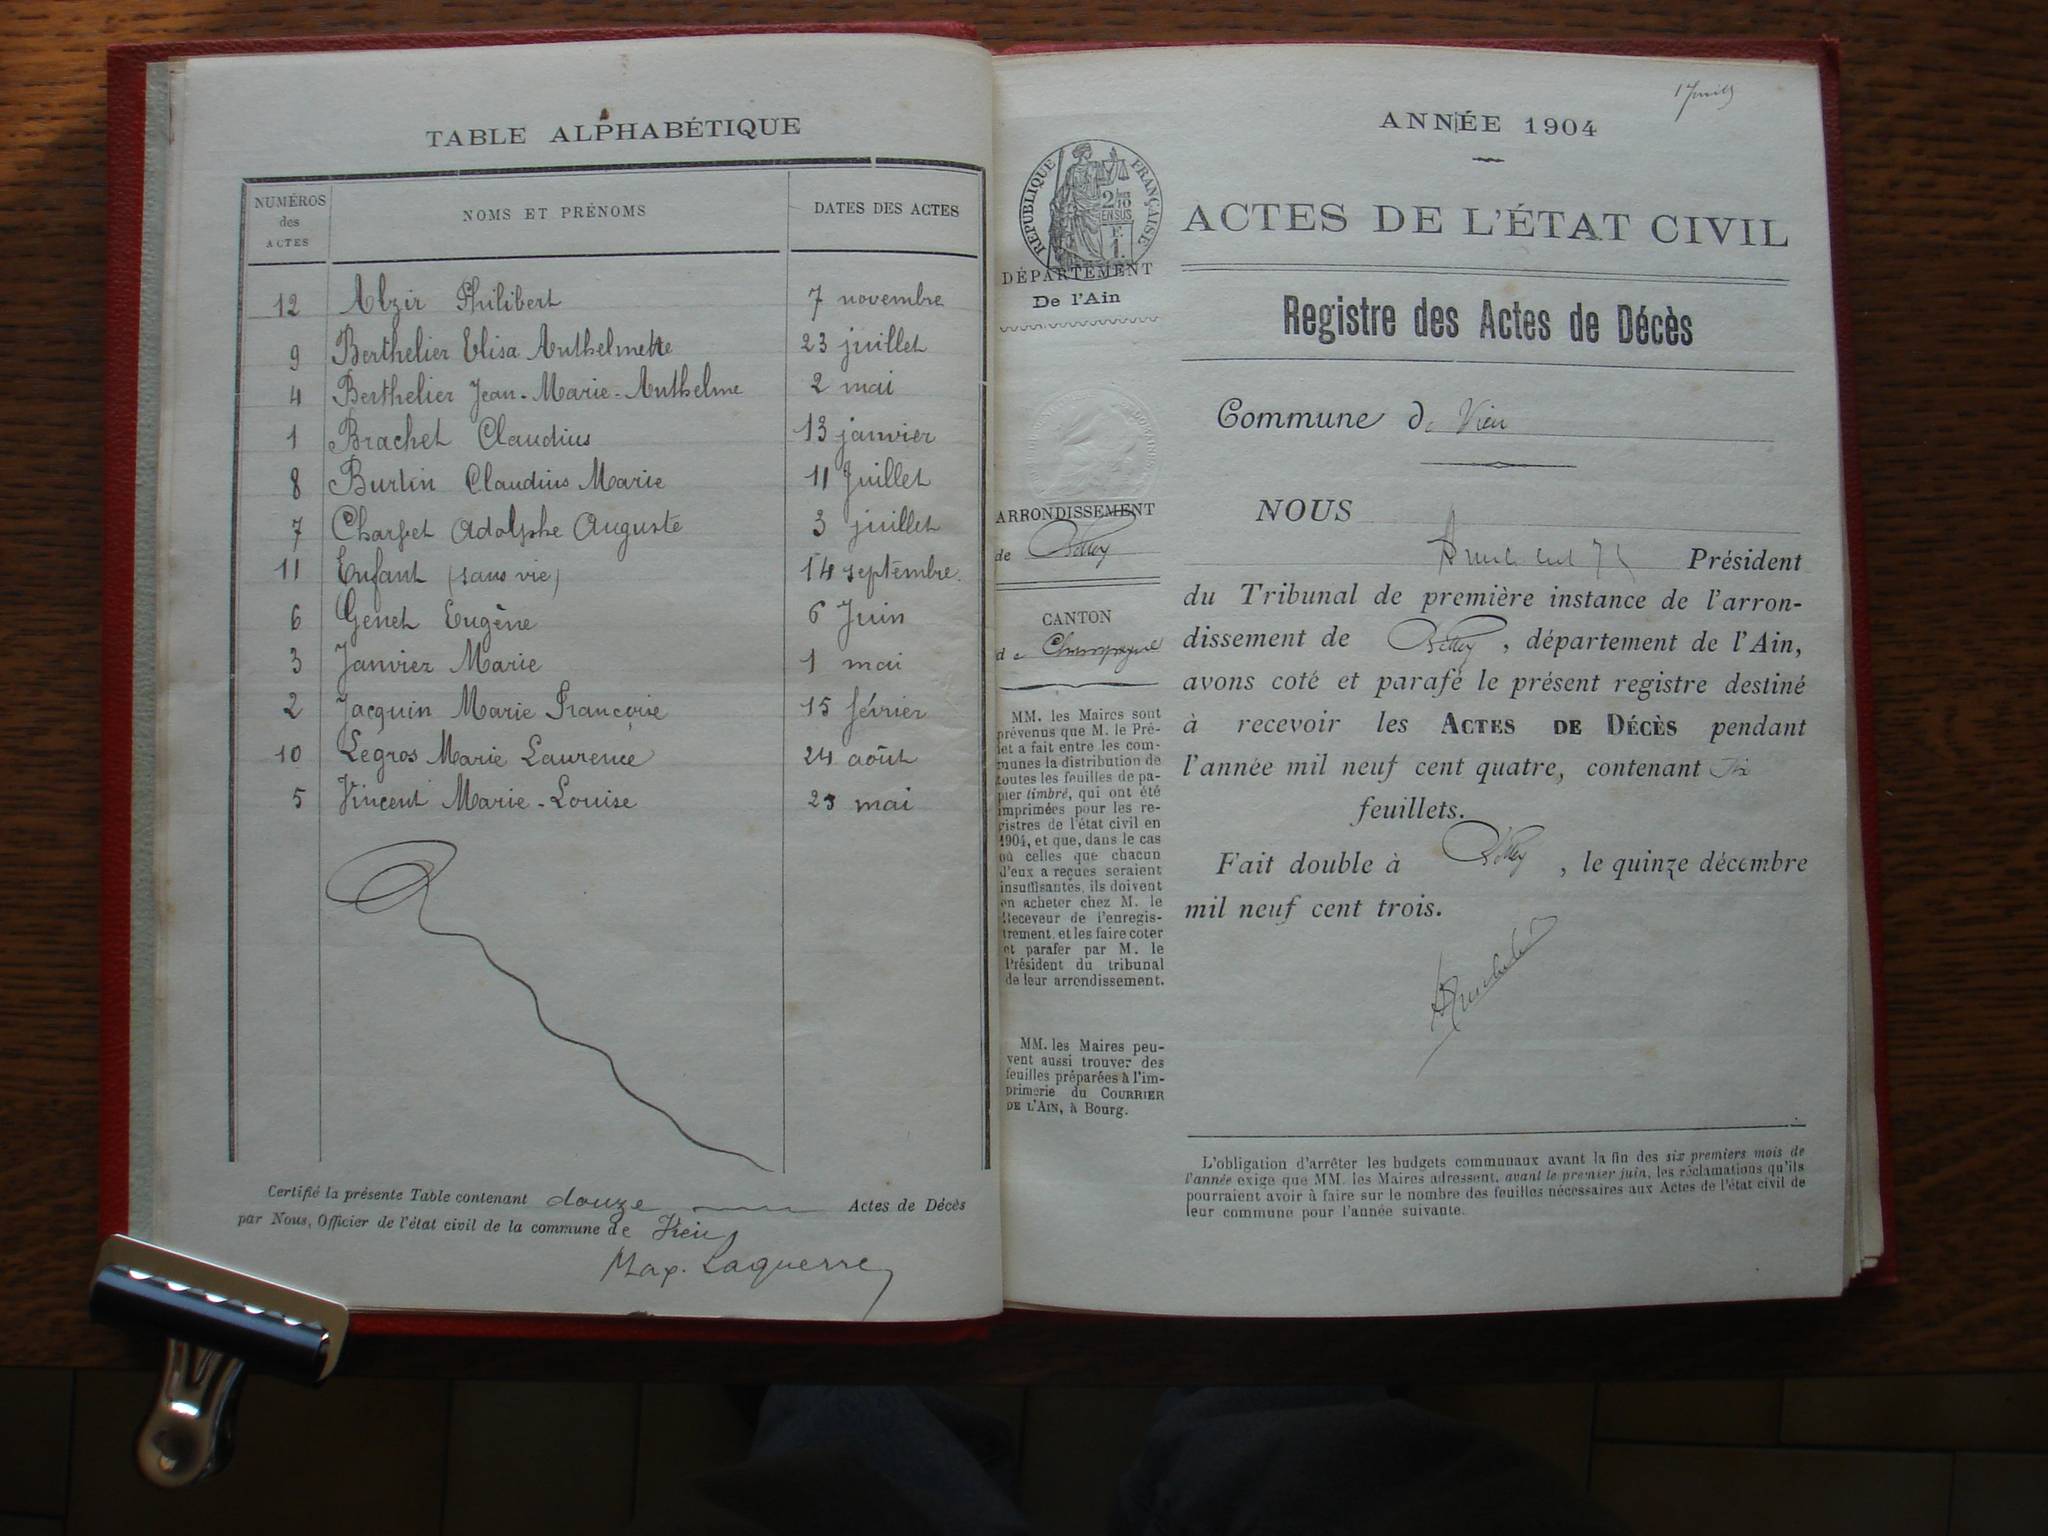 TABLE ALPHABÉTIQUE
NUMÉROS des ACTES NOMS ET PRÉNOMS DATES DES ACTES
12 Alzir Philibert 7 novembre
9 Berthelier Elisa Anthelmette 23 juillet
4 Berthelier Jean-Marie-Anthelme 2 mai
1 Brachet Claudius 13 janvier
8 Burtin Claudius Marie 11 Juillet
7 Charvet Adolphe Auguste 3 juillet
11 Enfant (sans vie) 14 septembre
6 Genet Eugène 6 Juin
3 Janvier Marie 1 mai
2 Jacquin Marie Françoise 15 février
10 Legros Marie Laurence 24 août
5 Vincent Marie-Louise 23 mai
Certifié la présente Table contenant douze Actes de Décès
par Nous, Officier de l'état civil de la commune de Vieu
Max. Laguerre
ANNÉE 1904
RÉPUBLIQUE FRANÇAISE
2/10
EN SUS
F.
1.
DÉPARTEMENT
De l'Ain
ARRONDISSEMENT
de Belley
CANTON
de Champagne
MM. les Maires sont
prévenus que M. le Pré-
fet a fait entre les com-
munes la distribution de
toutes les feuilles de pa-
pier timbré, qui ont été
imprimées pour les re-
gistres de l'état civil en
1904, et que, dans le cas
où celles que chacun
d'eux a reçues seraient
insuffisantes, ils doivent
en acheter chez M. le
Receveur de l'enregis-
trement, et les faire coter
et parafer par M. le
Président du tribunal
de leur arrondissement.
MM. les Maires peu-
vent aussi trouver des
feuilles préparées à l'im-
primerie du COURRIER
DE L'AIN, à Bourg.
ACTES DE L'ÉTAT CIVIL
Registre des Actes de Décès
Commune de Vieu
NOUS
Président
du Tribunal de première instance de l'arron-
dissement de Belley, département de l'Ain,
avons coté et parafé le présent registre destiné
à recevoir les ACTES DE DÉCÈS pendant
l'année mil neuf cent quatre, contenant
feuillets.
Fait double à Belley, le quinze décembre
mil neuf cent trois.
L'obligation d'arrêter les budgets communaux avant la fin des six premiers mois de
l'année exige que MM. les Maires adressent, avant le premier juin, les réclamations qu'ils
pourraient avoir à faire sur le nombre des feuilles nécessaires aux Actes de l'état civil de
leur commune pour l'année suivante.